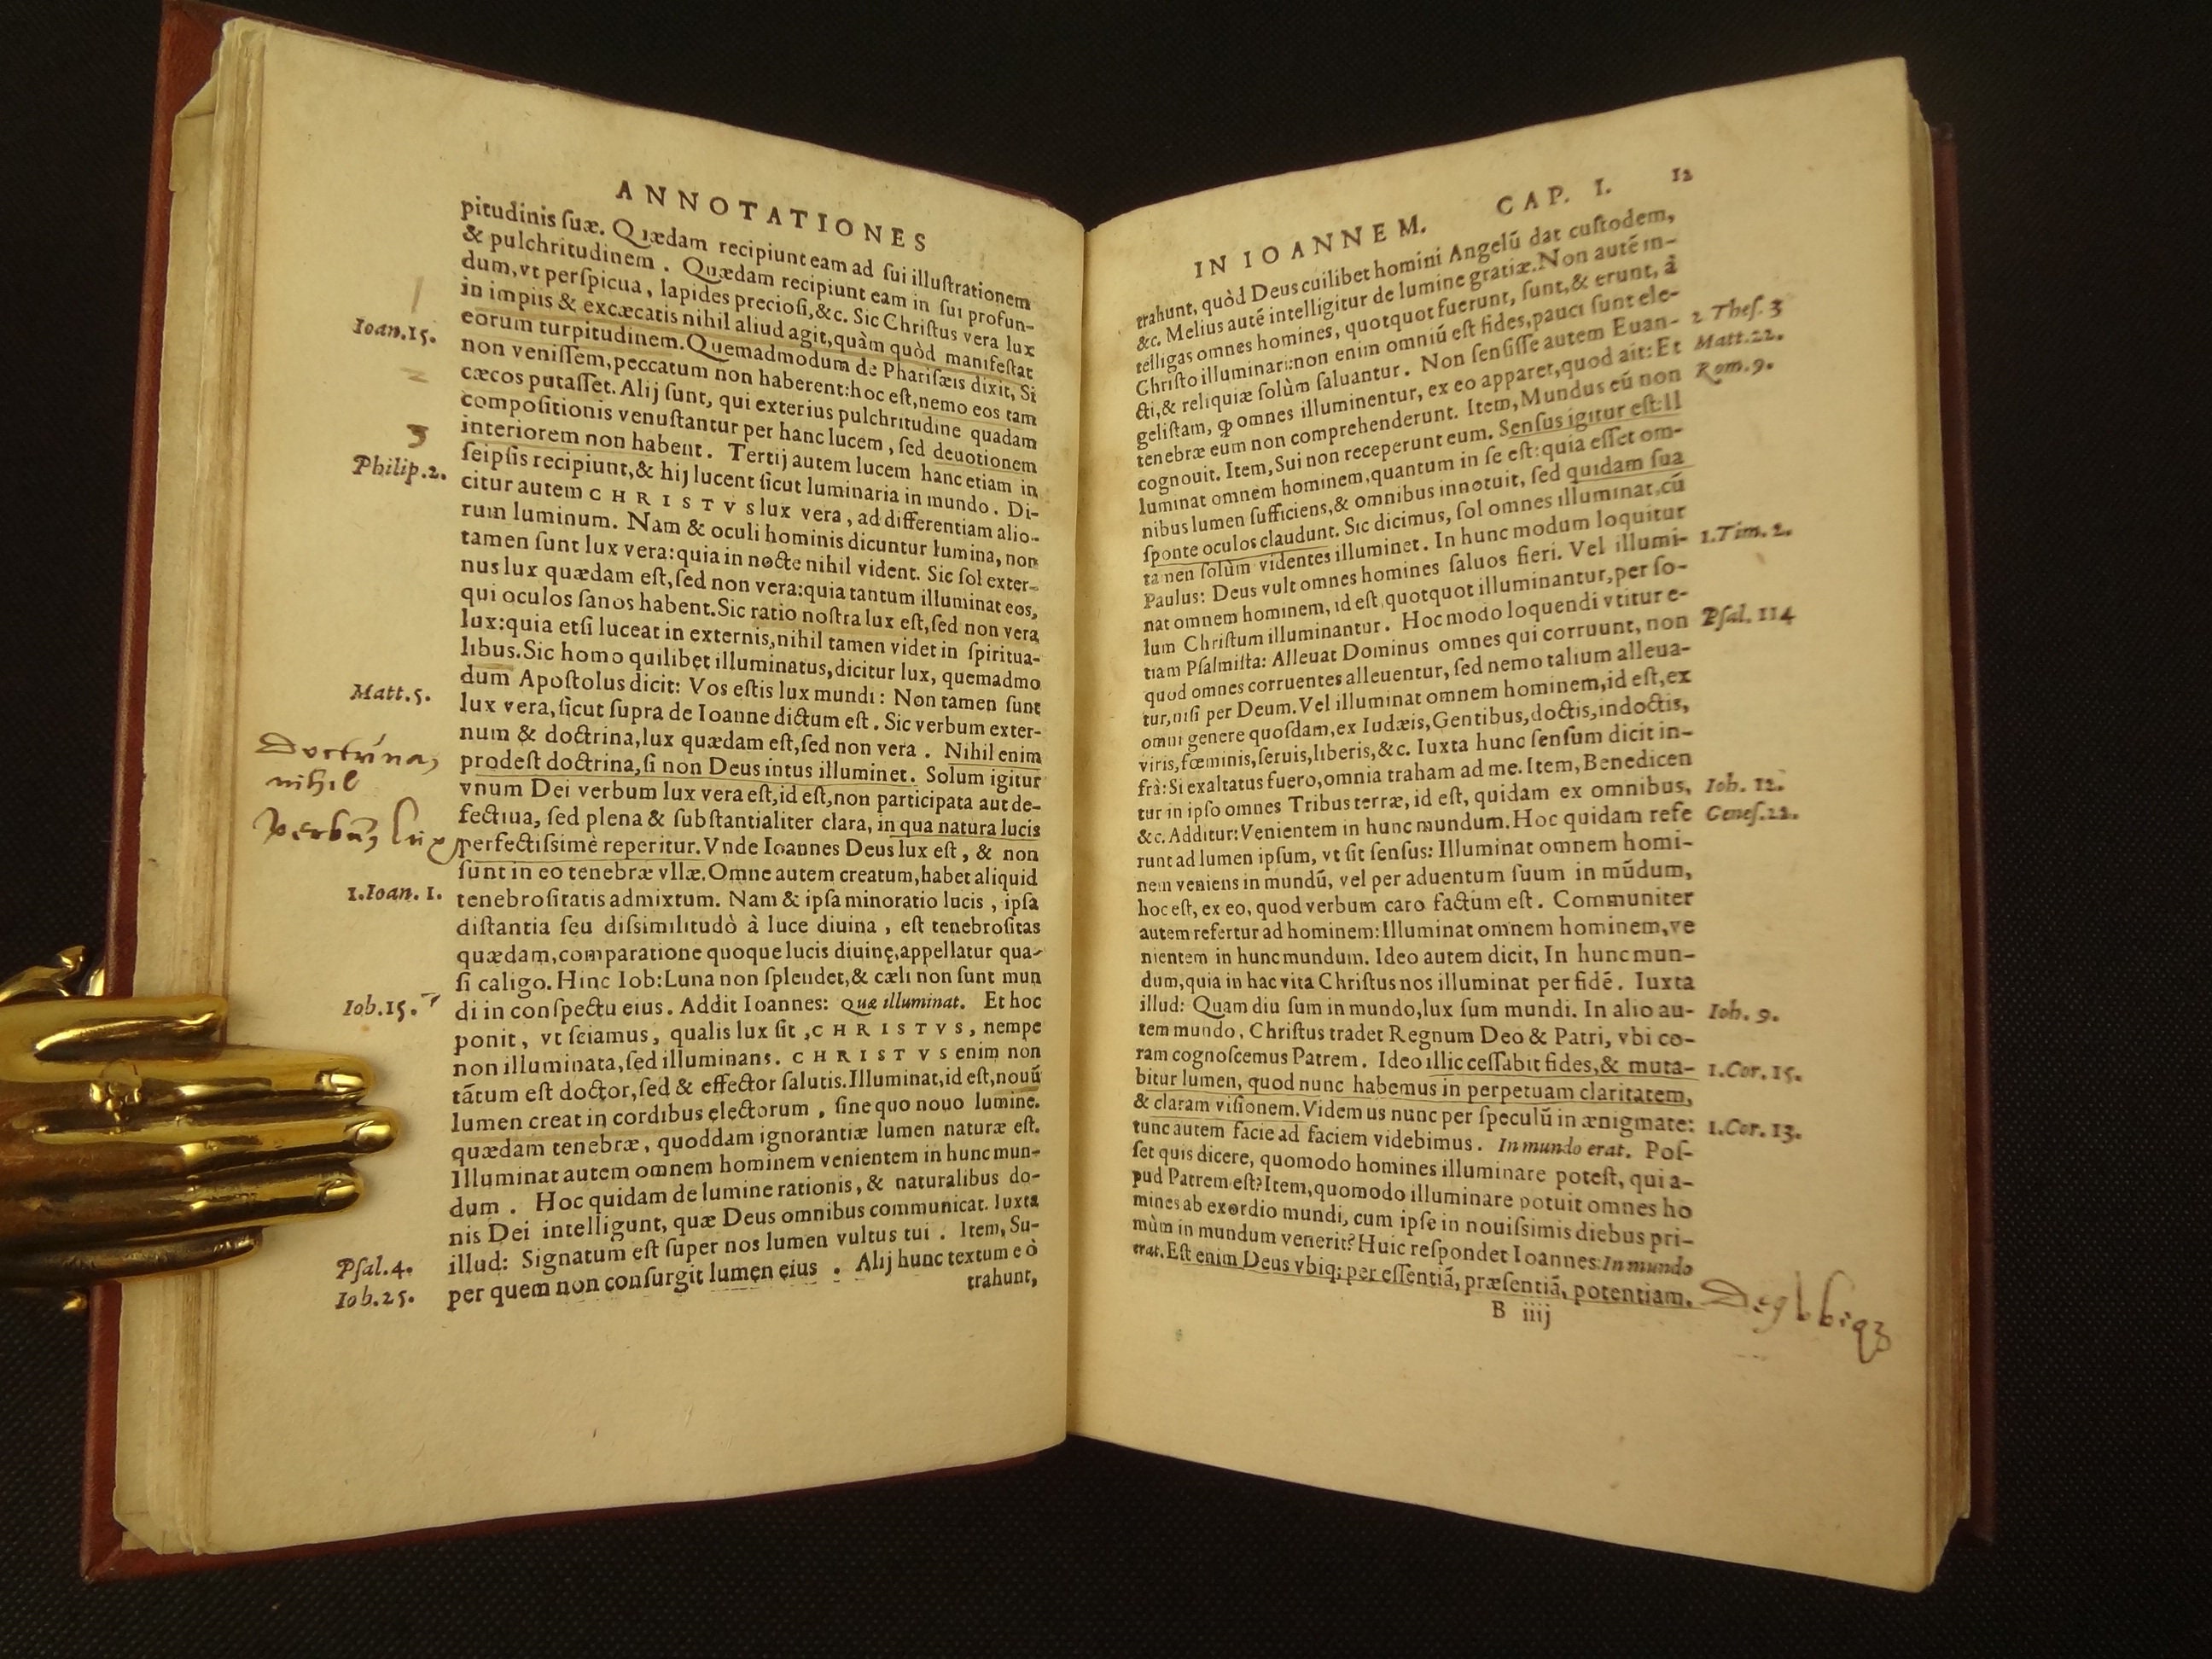 ANNOTATIONES
pitudinis ſuæ. Quædam recipiunt eam ad ſui illuſtrationem
& pulchritudinem. Quædam recipiunt eam in ſui profun-
dum, vt perſpicua, lapides precioſi, &c. Sic Chriſtus vera lux
in impiis & excæcatis nihil aliud agit, quàm quòd manifeſtat
eorum turpitudinem. Quemadmodum de Phariſæis dixit, Si
Ioan.15.
non veniſſem, peccatum non haberent: hoc eſt, nemo eos tam
cæcos putaſſet. Alij ſunt, qui exterius pulchritudine quadam
compoſitionis venuſtantur per hanc lucem, ſed deuotionem
3
interiorem non habent. Tertij autem lucem hanc etiam in
Philip.2.
ſeipſis recipiunt, & hij lucent ſicut luminaria in mundo. Di-
citur autem CHRISTVS lux vera, ad differentiam alio-
rum luminum. Nam & oculi hominis dicuntur lumina, non
tamen ſunt lux vera: quia in nocte nihil vident. Sic ſol exter-
nus lux quædam eſt, ſed non vera: quia tantum illuminat eos,
qui oculos ſanos habent. Sic ratio noſtra lux eſt, ſed non vera
lux: quia etſi luceat in externis, nihil tamen videt in ſpiritua-
libus. Sic homo quilibet illuminatus, dicitur lux, quemadmo
dum Apoſtolus dicit: Vos eſtis lux mundi: Non tamen ſunt
Matt.5.
lux vera, ſicut ſupra de Ioanne dictum eſt. Sic verbum exter-
num & doctrina, lux quædam eſt, ſed non vera. Nihil enim
Doctrina,
prodeſt doctrina, ſi non Deus intus illuminet. Solum igitur
nihil
vnum Dei verbum lux vera eſt, id eſt, non participata aut de-
fectiua, ſed plena & ſubſtantialiter clara, in qua natura lucis
perfectiſsimè reperitur. Vnde Ioannes Deus lux eſt, & non
ſunt in eo tenebræ vllæ. Omne autem creatum, habet aliquid
1.Ioan. 1.
tenebroſitatis admixtum. Nam & ipſa minoratio lucis, ipſa
diſtantia ſeu diſsimilitudò à luce diuina, eſt tenebroſitas
quædam, comparatione quoque lucis diuinę, appellatur qua-
ſi caligo. Hinc Iob: Luna non ſplendet, & cæli non ſunt mun
Iob.15.
di in conſpectu eius. Addit Ioannes: Quæ illuminat. Et hoc
ponit, vt ſciamus, qualis lux ſit, CHRISTVS, nempe
non illuminata, ſed illuminans. CHRISTVS enim non
tãtum eſt doctor, ſed & effector ſalutis. Illuminat, id eſt, nouũ
lumen creat in cordibus electorum, ſine quo nouo lumine.
quædam tenebræ, quoddam ignorantiæ lumen naturæ eſt.
Illuminat autem omnem hominem venientem in hunc mun-
dum. Hoc quidam de lumine rationis, & naturalibus do-
nis Dei intelligunt, quæ Deus omnibus communicat. Iuxta
Pſal.4.
illud: Signatum eſt ſuper nos lumen vultus tui. Item, Su-
Iob.25.
per quem non conſurgit lumen eius. Alij hunc textum eò
trahunt,
IN IOANNEM. CAP. I. 12
trahunt, quòd Deus cuilibet homini Angelũ dat cuſtodem,
&c. Melius autẽ intelligitur de lumine gratiæ. Non autẽ in-
telligas omnes homines, quotquot fuerunt, ſunt, & erunt, à
Chriſto illuminari: non enim omniũ eſt fides, pauci ſunt ele-
2 Theſ. 3
cti, & reliquiæ ſolùm ſaluantur. Non ſenſiſſe autem Euan-
Matt.22.
geliſtam, ꝙ omnes illuminentur, ex eo apparet, quod ait: Et
Rom.9.
tenebræ eum non comprehenderunt. Item, Mundus eũ non
cognouit. Item, Sui non receperunt eum. Senſus igitur eſt: Il
luminat omnem hominem, quantum in ſe eſt: quia eſſet om-
nibus lumen ſufficiens, & omnibus innotuit, ſed quidam ſua
ſponte oculos claudunt. Sic dicimus, ſol omnes illuminat, cũ
tamen ſolùm videntes illuminet. In hunc modum loquitur
Paulus: Deus vult omnes homines ſaluos fieri. Vel illumi-
1.Tim.2.
nat omnem hominem, id eſt, quotquot illuminantur, per ſo-
lum Chriſtum illuminantur. Hoc modo loquendi vtitur e-
tiam Pſalmiſta: Alleuat Dominus omnes qui corruunt, non
Pſal. 114
quod omnes corruentes alleuentur, ſed nemo talium alleua-
tur, niſi per Deum. Vel illuminat omnem hominem, id eſt, ex
omni genere quoſdam, ex Iudæis, Gentibus, doctis, indoctis,
viris, fœminis, ſeruis, liberis, &c. Iuxta hunc ſenſum dicit in-
frà: Si exaltatus fuero, omnia traham ad me. Item, Benedicen
Ioh. 12.
tur in ipſo omnes Tribus terræ, id eſt, quidam ex omnibus,
Geneſ.22.
&c. Additur: Venientem in hunc mundum. Hoc quidam refe
runt ad lumen ipſum, vt ſit ſenſus: Illuminat omnem homi-
nem veniens in mundũ, vel per aduentum ſuum in mũdum,
hoc eſt, ex eo, quod verbum caro factum eſt. Communiter
autem refertur ad hominem: Illuminat omnem hominem, ve
nientem in hunc mundum. Ideo autem dicit, In hunc mun-
dum, quia in hac vita Chriſtus nos illuminat per fidẽ. Iuxta
illud: Quam diu ſum in mundo, lux ſum mundi. In alio au-
Ioh. 9.
tem mundo, Chriſtus tradet Regnum Deo & Patri, vbi co-
ram cognoſcemus Patrem. Ideo illic ceſſabit fides, & muta-
1.Cor. 15.
bitur lumen, quod nunc habemus in perpetuam claritatem,
& claram viſionem. Videmus nunc per ſpeculũ in ænigmate:
1.Cor. 13.
tunc autem facie ad faciem videbimus. In mundo erat. Poſ-
ſet quis dicere, quomodo homines illuminare poteſt, qui a-
pud Patrem eſt? Item, quomodo illuminare potuit omnes ho
mines ab exordio mundi, cum ipſe in nouiſsimis diebus pri-
mùm in mundum venerit? Huic reſpondet Ioannes: In mundo
erat. Eſt enim Deus vbiq; per eſſentiã, præſentiã, potentiam.
B iiij